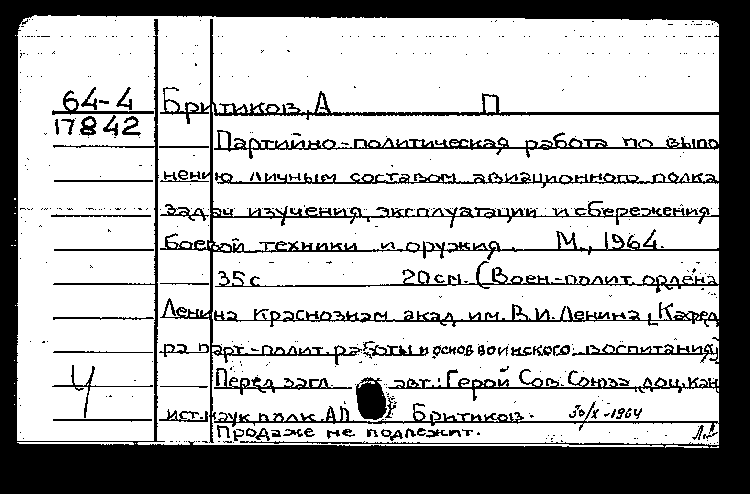 64-4 Бритиков, А П
17842
Партийно-политическая работа по выпо
нению личным составом авиационного полка
задач изучения, эксплуатации и сбережения
боевой техники и оружия. М., 1964.
35 с 20 см. (Воен.-полит. ордена
Ленина Краснознам акад. им. В. И. Ленина, Кафед
ра парт.-полит. работы и основ воинского воспитания)
Перед загл. авт.: Герой Сов. Союза, доц., кан
ист. наук, полк. АП Бритиков. 30/X-1964
Продаже не подлежит. Л.Д